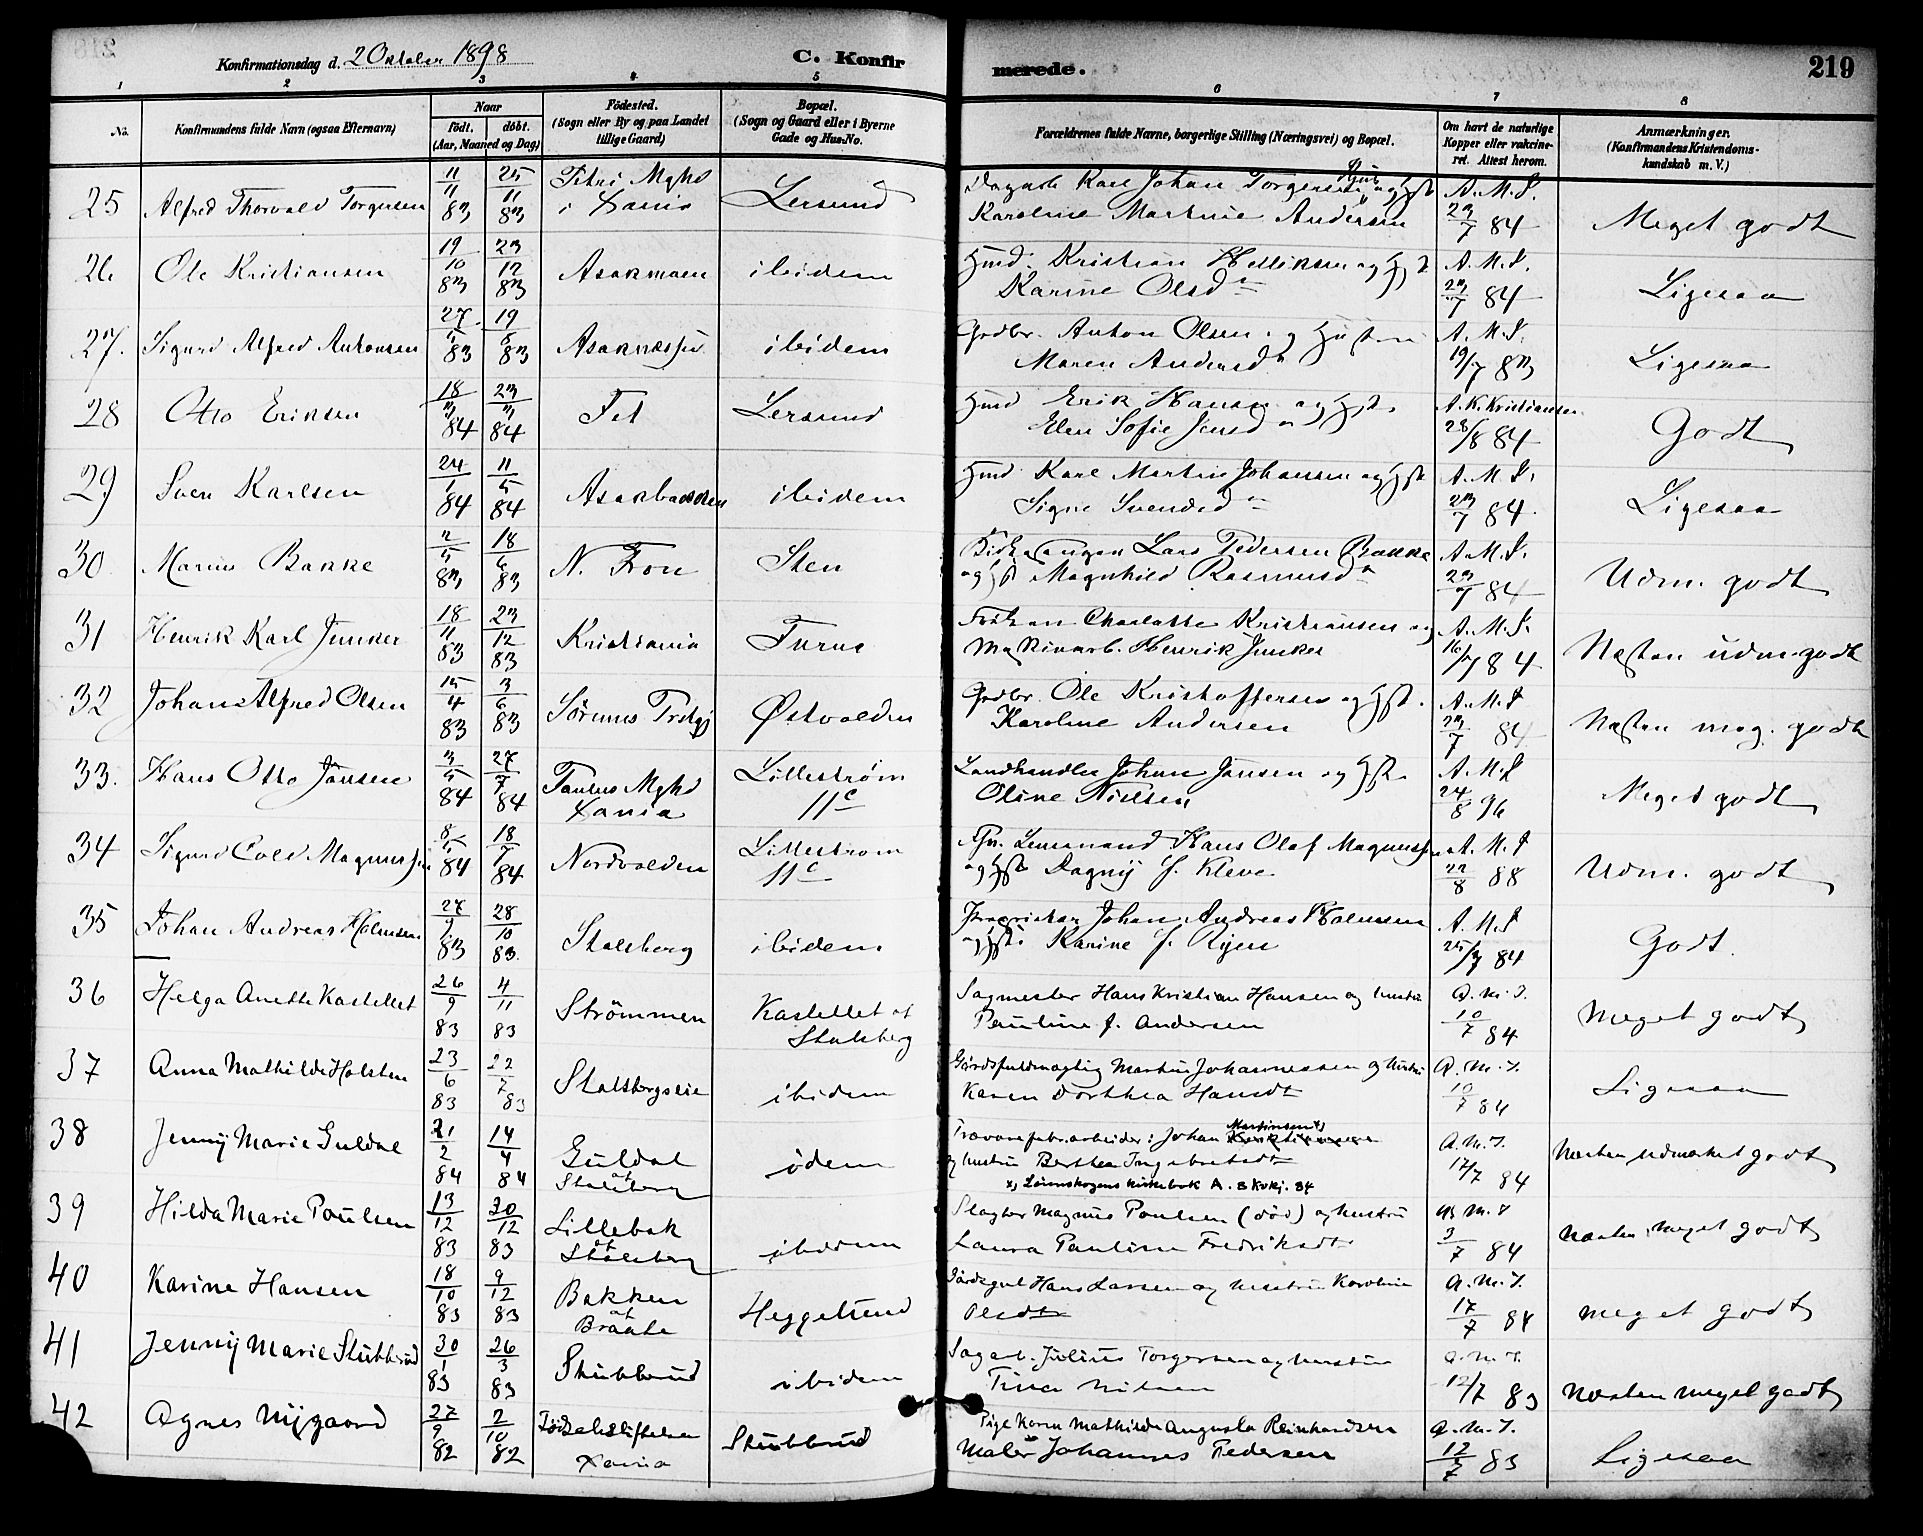 Konfirmationsdag d. 2 Oktober 1898
C. Konfirmerede.
219
1 2 3 4 5 6 7 8
No. Konfirmandens fulde Navn (ogsaa Efternavn) Naar födt. döbt. (Aar, Maaned og Dag) Födested. (Sogn eller By og paa Landet tillige Gaard) Bopæl. (Sogn og Gaard eller i Byerne Gade og Hus-No. Forældrenes fulde Navne, borgerlige Stilling (Næringsvei) og Bopæl. Om havt de naturlige Kopper eller vakcineret. Attest herom. Anmærkninger. (Konfirmandens Kristendomskundskab m. V.)
25 Alfred Thorvald Torgersen 11/11 83 25/11 83 Petri Mghd i Xania Lersund Karl Johan Torgersen og Hst Karoline Martine Andersen A. M. S. 23/7 84 Meget godt
26 Ole Kristiansen 19/10 83 23/12 83 Asakmoen ibidem Hmd. Kristian Helliksen og Hst Karine Olsd A. M. S. 23/7 84 Ligesaa
27. Sigurd Alfred Antonsen 27/5 83 19/8 83 ibidem Grdbr. Anton Olsen og Hustru Maren Andersd A. M. S. 19/7 83 Ligesaa
28 Otto Eriksen 18/3 84 23/3 84 Fet Lersund Hmd Erik Hansen og Hst. Elen Sofie Jensd A. K. Kristiansen 28/8 84 Godt
29 Sven Karlsen 24/1 84 11/5 84 Asakbakken ibidem Hmd Karl Martin Johansen og Hst Signe Svendsd A. M. S. 23/7 84. Ligesaa
30 Marius Bakke 2/5 83 18/6 83 N. Fron Sten Lars Pedersen Bakke og Hst Magnhild Rasmusd A. M. S. 23/7 84 Udm. godt
31 Henrik Karl Junker 18/11 83 23/12 83 Kristiania Turne Frøken Charlotte Kristiansen og Maskinarb. Henrik Junker A. M. S. 16/7 84 Næsten udm. godt
32 Johan Alfred Olsen 15/4 83 3/6 83 Sörums Østvolden Grdbr. Ole Kristoffersen og Hst. Karoline Andersen A. M. S 23/7 84 Næsten meg. godt
33. Hans Otto Jansen 3/5 84 27/7 84 Paulus Mghd Xania Lillestrøm 11c Landhandler Johan Jansen og Hst. Oline Nielsen A. M. S 24/8 96 Meget godt
34 Sigurd Cold Magnussen 8/5 84 18/7 84 Nordvolden Lillestrøm 11c Lensmand Hans Olaf Magnussen og Hst Dagny f. Kleve A. M. S 22/8 88 Udm. godt
35 Johan Andreas Holmsen 27/9 83 28/10 83. Stalsberg ibidem Johan Andreas Holmsen og Hst. Karine f. Ryen A. M. S 25/7 84 Godt.
36 Helga Anette Kastellet 26/9 83 4/11 83 Strömmen Kastellet af Stalsberg Sagmester Hans Kristian Hansen og hustru Pauline f. Andersen A. M. S. 10/7 84 Meget godt
37 Anna Mathilde Holsten 23/6 83 22/7 83 Stalsbergseie ibidem Gårdsfuldmægtig Martin Johannessen og hustru Karen Dorthea Hansdt A. M. S. 10/7 84 Ligesaa
38 Jenny Marie Guldal 21/2 84 14/4 84 Guldal af Stalsberg idem Trævarefabr.arbeider: Johan Martinsen x) og hustru Berthea Ingebretsdt A. M. S. 17/7 84 Næsten udmærket godt
x) Lørenskogens kirkebok A.
39 Hilda Marie Poulsen 13/12 83 30/12 83 Lillebæk af Stalsberg ibidem Slagter Magnus Poulsen (død) og hustru Laura Pauline Fredriksdt A. M. S 3/7 84 Næsten meget godt
40 Karine Hansen 18/10 83 9/12 83 Bakken af Braate Heggelund Gårdsgut Hans Larsen og hustru Karoline Olsdt A. M. S. 17/7 84 Meget godt
41 Jenny Marie Stubberud 30/1 83 26/3 83 Stubberud ibidem Sagarb. Julius Torgersen og hustru Tina Nilsen A. M. S. 12/7 83 Næsten meget godt
42 Agnes Nygaard 27/9 82 2/10 82 Födselsstiftelsen Xania Stubberud Pige Karen Mathilde Augusta Reinhardsen Maler Johannes Pedersen A. M. S. 12/7 83 Ligesaa